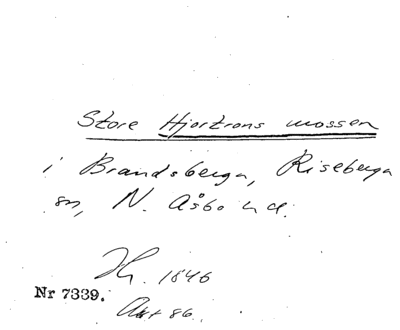 Store Hjortrons mossen
i Brandsberga, Riseberga
sn, N. Åsbo hd.
1846
Nr 7339.
Akt 86.